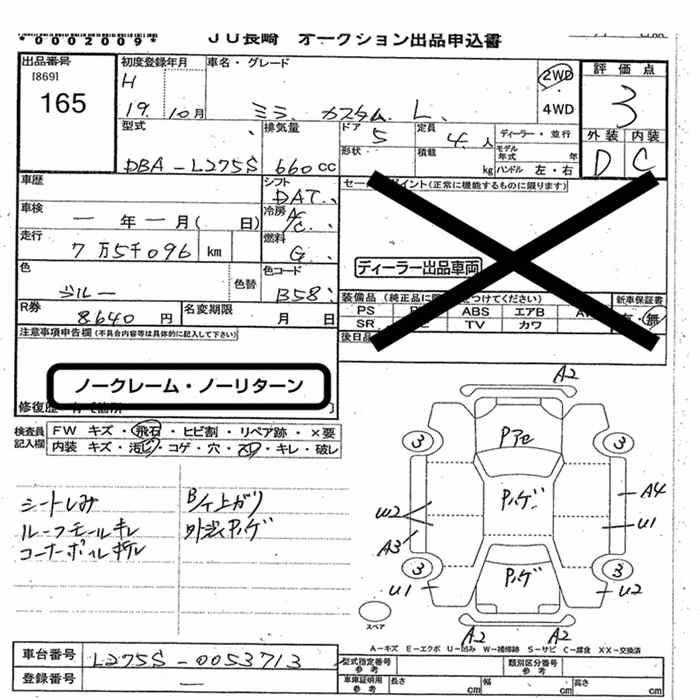 *0002009* JU長崎 オークション出品申込書
出品番号 初度登録年月 車名・グレード 評価点
[869] H 2WD
165 19. 10月 ミラ カスタム L. 4WD 3
型式 排気量 ドア 5 定員 4. 人 ディーラー・並行 外装 内装
形状 積載 kg モデル年式 年
DBA-L275S 660 cc ハンドル 左・右 D C
車歴 シフト DAT.
セールスポイント(正常に機能するものに限ります)
車検 一 年 一 月( 日) 冷房 A/C
走行 7万5千096 km 燃料 G
ディーラー出品車両
色 ブルー 色替 色コード B58
装備品(純正品に をつけてください) 新車保証書
PS ABS エアB 有・無
SR TV カワ
R券 8640 円 名変期限 月 日
後日品
注意事項申告欄(不具合内容等は具体的に記入して下さい)
ノークレーム・ノーリターン
修復歴
検査員記入欄 FW キズ・飛石・ヒビ割・リペア跡・×要
内装 キズ・汚れ・コゲ・穴・スレ・キレ・破レ
シートしみ B/イ上ガリ
ルーフモールキレ 外装ハゲ
コーナーポール折レ
A2
3 Pアセ 3
Pハゲ A4
W2 U1
A3
3 Pハゲ 3
U1 U2
A2 A2
スペア
A-キズ E-エクボ U-凹み W-補修跡 S-サビ C-腐食 XX-交換済
車台番号 L275S-0053713
型式指定番号 参考 類別区分番号 参考
登録番号 —
車庫証明用 参考 長さ cm 幅 cm 高さ cm